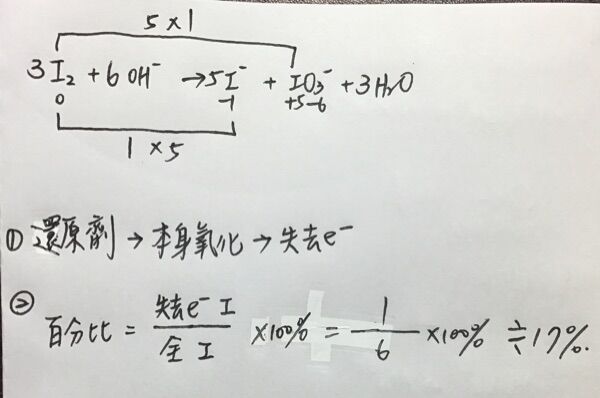 5×1
3I₂ + 6OH⁻ → 5I⁻ + IO₃⁻ + 3H₂O
0 -1 +5-6
1×5
① 還原劑 → 本身氧化 → 失去e⁻
② 百分比 = 失去e⁻ I / 全 I ×100% = 1/6 ×100% ≑ 17%.